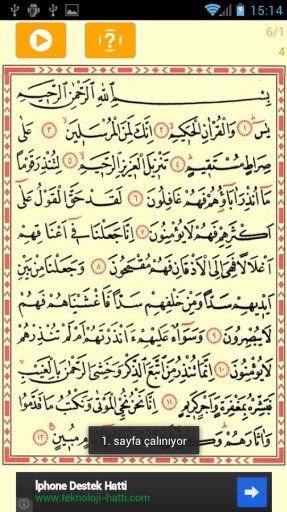 15:14
6/1
4
بِسْمِ اللّٰهِ الرَّحْمٰنِ الرَّحِيمِ
يٰسٓ ﴿١﴾ وَالْقُرْاٰنِ الْحَكِيمِ ﴿٢﴾ اِنَّكَ لَمِنَ الْمُرْسَلِينَ ﴿٣﴾ عَلٰى
صِرَاطٍ مُسْتَقِيمٍ ﴿٤﴾ تَنْزِيلَ الْعَزِيزِ الرَّحِيمِ ﴿٥﴾ لِتُنْذِرَ قَوْمًا
مَٓا اُنْذِرَ اٰبَٓاؤُ۬هُمْ فَهُمْ غَافِلُونَ ﴿٦﴾ لَقَدْ حَقَّ الْقَوْلُ عَلٰٓى
اَكْثَرِهِمْ فَهُمْ لَا يُؤْمِنُونَ ﴿٧﴾ اِنَّا جَعَلْنَا فِٓي اَعْنَاقِهِمْ
اَغْلَالًا فَهِيَ اِلَى الْاَذْقَانِ فَهُمْ مُقْمَحُونَ ﴿٨﴾ وَجَعَلْنَا مِنْ بَيْنِ
اَيْدِيهِمْ سَدًّا وَمِنْ خَلْفِهِمْ سَدًّا فَاَغْشَيْنَاهُمْ فَهُمْ
لَا يُبْصِرُونَ ﴿٩﴾ وَسَوَٓاءٌ عَلَيْهِمْ ءَاَنْذَرْتَهُمْ اَمْ لَمْ تُنْذِرْهُمْ
لَا يُؤْمِنُونَ ﴿١٠﴾ اِنَّمَا تُنْذِرُ مَنِ اتَّبَعَ الذِّكْرَ وَخَشِيَ الرَّحْمٰنَ بِالْغَيْبِ
فَبَشِّرْهُ بِمَغْفِرَةٍ وَاَجْرٍ كَرِيمٍ ﴿١١﴾ اِنَّا نَحْنُ نُحْيِ الْمَوْتٰى وَنَكْتُبُ مَا قَدَّمُوا
وَاٰثَارَهُمْ وَكُلَّ مُبِينٍ ﴿١٢﴾
1. sayfa çalınıyor
İphone Destek Hatti
www.teknoloji-hatti.com